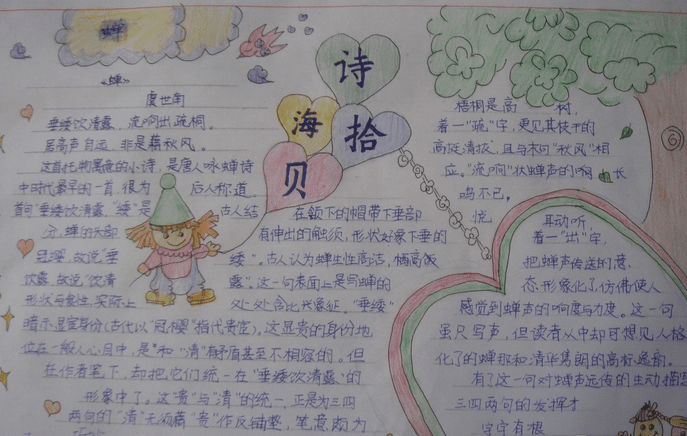 蝉
诗
海
拾
贝
《蝉》
虞世南
垂緌饮清露，流响出疏桐。
居高声自远，非是藉秋风。
这首托物寓意的小诗，是唐人咏蝉诗
中时代最早的一首，很为 后人称道
首句"垂緌饮清露，"緌"是 古人结
在颔下的帽带下垂部
分，蝉的头部 有伸出的触须，形状好象下垂的
緌"。古人认为蝉生性高洁，栖高饮
饮露，故说"饮清 露"。这一句表面上是写蝉的
形状与食性，实际上 处处含比兴象征，"垂緌"
暗示显宦身份(古代以"冠缨"指代贵宦)。这显贵的身份地
位在一般人心目中，是 和"清"有矛盾甚至不相容的。但
在作者笔下，却把它们统一在"垂緌饮清露"的
形象中了。这"贵"与"清"的统一，正是为三四
两句的"清"无须藉"贵"作反铺垫，笔意颇为
梧桐是高 树，
着一"疏"字，更见其枝干的
高挺清拔，且与末句"秋风"相
应。"流响"状蝉声的 长
鸣不已，
悦 耳动听，
着一"出"字，
把蝉声传送的意
态形象化了，仿佛使人
感觉到蝉声的响度与力度。这一句
虽只写声，但读者从中却可想见人格
化了的蝉那种清华隽朗的高标逸韵。
有了这一句对蝉声远传的生动描
三四两句的发挥才
字字有根